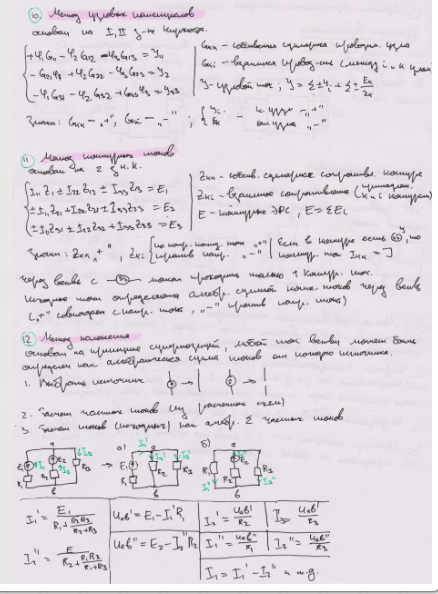 10. Метод узловых потенциалов
основан на I, II з-не Кирхгофа.
+φ₁G₁₁ - φ₂G₁₂ - φ₃G₁₃ = J₁₁
-G₂₁φ₁ + φ₂G₂₂ - φ₃G₂₃ = J₂
-φ₁G₃₁ - φ₂G₃₂ + G₃₃φ₃ = J₃₃
Gкк - собственная суммарная проводим. узла
Gкi - взаимная проводим-ть
J - узловой ток; J = Σ ± Ji + Σ ± Eк/Zк
Знаки: Gкк - "+", Gкi - "-"; к узлу - "+"
от узла "-"
11. Метод контурных токов
основан на 2 з.н.К.
I₁₁Z₁₁ ± I₂₂Z₁₂ ± I₃₃Z₁₃ = E₁
± I₁₁Z₂₁ + I₂₂Z₂₂ ± I₃₃Z₂₃ = E₂
± I₁₁Z₃₁ ± I₂₂Z₃₂ + I₃₃Z₃₃ = E₃
Zкк - собств. суммарное сопротивл. контура
Zкi - взаимное сопротивление
E - контурные ЭРС, E = ΣEi
Знаки: Zкк "+", Zкi по напр. конт. ток "+"
против напр. "-"
Если в контуре есть J, то
контур. ток Iкк = J
через ветвь с можно проходить только 1 контур. ток.
Искомые токи определяются алгебр. суммой конт. токов через ветвь
("+" совпадает с напр. тока, "-" против напр. тока)
12 Метод наложения
основан на принципе суперпозиций, любой ток ветви может быть
определен как алгебраическая сумма токов от каждого источника.
1. Выбираем источник
2. Расчет частных токов (из расчетных схем)
3. Расчет токов (исходных) как алгебр. Σ частных токов
а) б)
I₁' = E₁/(R₁ + R₂R₃/(R₂+R₃)) Uав' = E₁ - I₁'R₁ I₂' = Uав'/R₂ I₃' = Uав'/R₃
I₂'' = E/(R₂ + R₁R₃/(R₁+R₃)) Uав'' = E₂ - I₂''R₂ I₁'' = Uав''/R₁ I₃'' = Uав''/R₃
I₁ = I₁' - I₁'' и т.д.